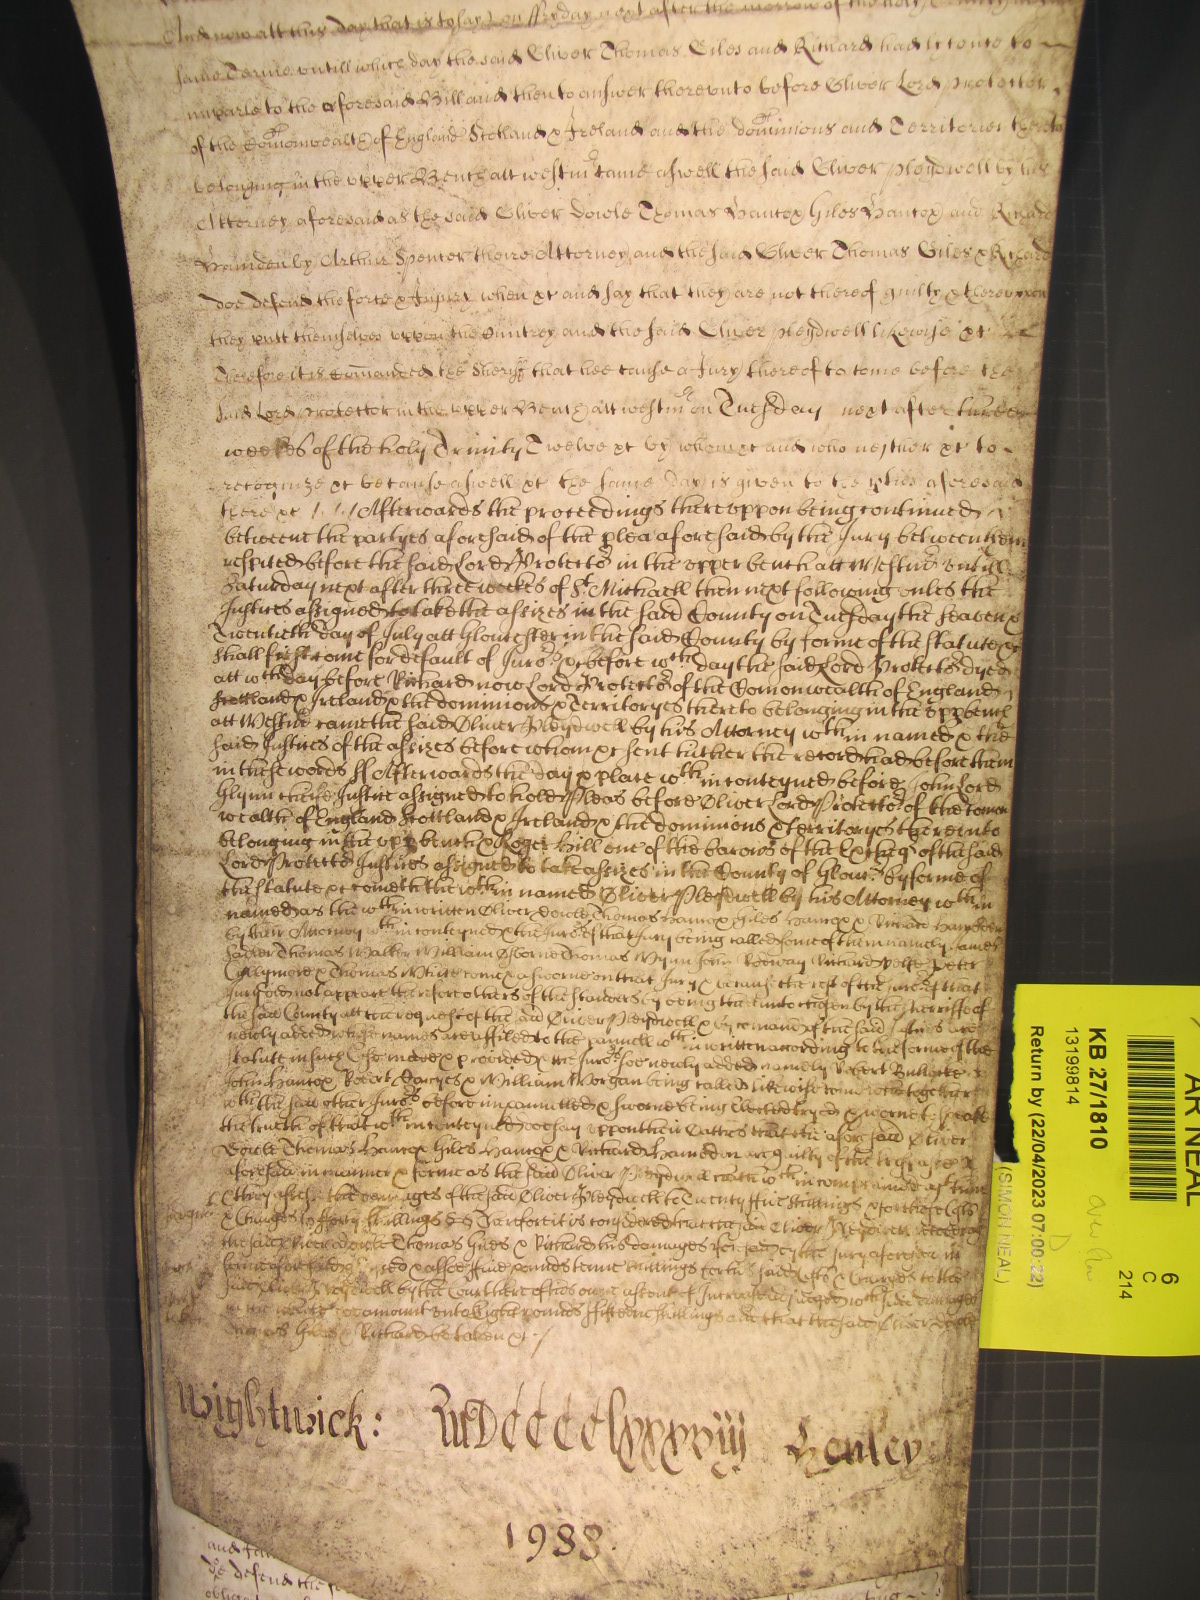 And now att this day that is to say on ffryday next after the morrow of the holy Trinity
same Terme untill which day the said Oliver Thomas Giles and Richard had lycence to
imparle to the aforesaid Bill and then to answer thereunto before Oliver Lord Protector
of the Comonwealth of England Scotland & Ireland and the dominions and Territories thereto
belonging in the upper Bench att westmr came aswell the said Oliver Pleydwell by his
Attorney aforesaid as the said Oliver Dowle Thomas Hancox Giles Hancox and Richard
Hamden by Arthur Spencer theire Attorney and the said Oliver Thomas Giles & Richard
doe defend the force & Injury when &c and say that they are not thereof guilty & thereuppon
they putt themselves uppon the Cuntrey and the said Oliver Pleydwell likewise &c
Therefore it is Comanded the Sheriff that hee cause a Jury thereof to come before the
said Lord Protector in the upper Bench att westmr on Tuesday next after three
weekes of the holy Trinity Twelve &c by whome &c and who neither &c to
recognize &c because aswell &c the same day is given to the pties aforesaid
there &c Afterwards the proceedings thereuppon being continued
betweene the partyes aforesaid of the plea aforesaid by the Jury between them
respited before the said Lord Protector in the upper bench att Westmr untill
Saturday next after three weekes of St Michaell then next following unles the
Justices assigned to take the assizes in the said County on Tuesday the seaven &
Twentieth day of July att Gloucester in the said County by forme of the statute &c
shall first come for default of Juros &c before wch day the said Lord Protector dyed
att wch day before Richard now Lord Protector of the Comonwealth of England
Scottland & Ireland & the dominions & Territoryes thereto belonging in the upp bench
att Westmr came the said Oliver Pleydwell by his Attorney wthin named & the
said Justices of the assizes before whom &c sent hither the record had before them
in these words ss Afterwards the day & place wthin conteyned before John Lord
Glynn cheife Justice assigned to hold Pleas before Oliver Lord Protector of the Comon
wealth of England Scottland & Ireland & the dominions & Territoryes thereunto
belonging in the upp bench & Roger Hill one of the barons of the Excheqr of the said
Lord Protector Justices assigned to take assizes in the County of Glouc by forme of
the statute &c cometh the wthin named Oliver Pleydwell by his Attorney wthin
named as the wthin written Oliver Dowle Thomas Hancox Giles Hancox & Richard Hampden
by their Attorney wthin conteyned & the Juros of that Jury being called some of them namely James
Thomas Walker William Osborne Thomas Wynn John Richard Peter
& Thomas White come & are sworne on that Jury & because the rest of the Juros of that
Jury doe not appeare therefore others of the standers by being thereunto chosen by the Sherriffe of
the said County att the request of the said Oliver Pleydwell & by comand of the said Justices are
newly added whose names are affiled to the pannell wthin written according to the forme of the
statute in such Case made & provided & the Juros soe newly added namely Robert
John Hancox Robert & William Morgan being called likewise come who together
wth the said other Juros before impannelled & sworne being Elected tryed & sworne to speake
the truth of that wthin conteyned doe say uppon their Oathes that the aforesaid Oliver
Dowle Thomas Hancox Giles Hancox & Richard Hamdon are guilty of the trespasse
aforesaid in manner & forme as the said Oliver Pleydwell hath wthin complained agt them
& they assesse the damages of the said Oliver Pleydwell to Twenty ffive shillings & for those Costs
& Charges to fforty shillings Therefore it is considered that the said Oliver Pleydwell recover agt
the said Oliver Dowle Thomas Giles & Richard his damages by the Jury aforesaid in
forme aforesaid assessed & alsoe ffive pounds shillings for his said Costs & Charges to the
said Oliver Pleydwell by the Court here of his owne assent of Increase adjudged wch said damages
in the whole doe amount unto Eight pounds ffifteene shillings and that the said Oliver Dowle
Thomas Giles & Richard be taken &c
Wightwick: MDCCCClxxxviij Henley
1988.
and
doe defend the
AR NEAL
KB 27/1810
13199814
Return by (22/04/2023 07:00:22)
(SIMON NEAL)
6
C
214